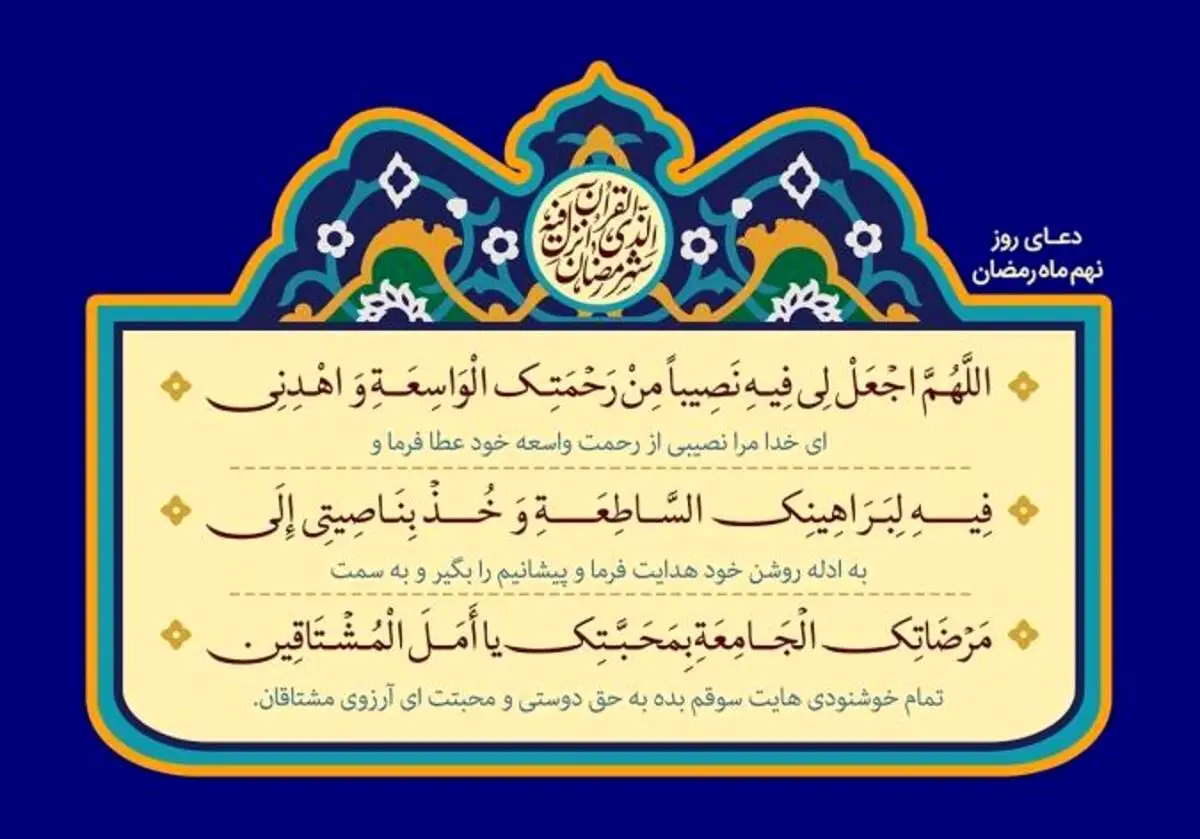 شهر رمضان
الذی أنزل فیه
القرآن
دعای روز
نهم ماه رمضان
اللَّهُمَّ اجْعَلْ لِی فِیهِ نَصِیباً مِنْ رَحْمَتِک الْوَاسِعَةِ وَ اهْدِنِی
ای خدا مرا نصیبی از رحمت واسعه خود عطا فرما و
فِیهِ لِبَرَاهِینِک السَّاطِعَةِ وَ خُذْ بِنَاصِیتِی إِلَی
به ادله روشن خود هدایت فرما و پیشانیم را بگیر و به سمت
مَرْضَاتِک الْجَامِعَةِ بِمَحَبَّتِک یا أَمَلَ الْمُشْتَاقِین.
تمام خوشنودی هایت سوقم بده به حق دوستی و محبتت ای آرزوی مشتاقان.